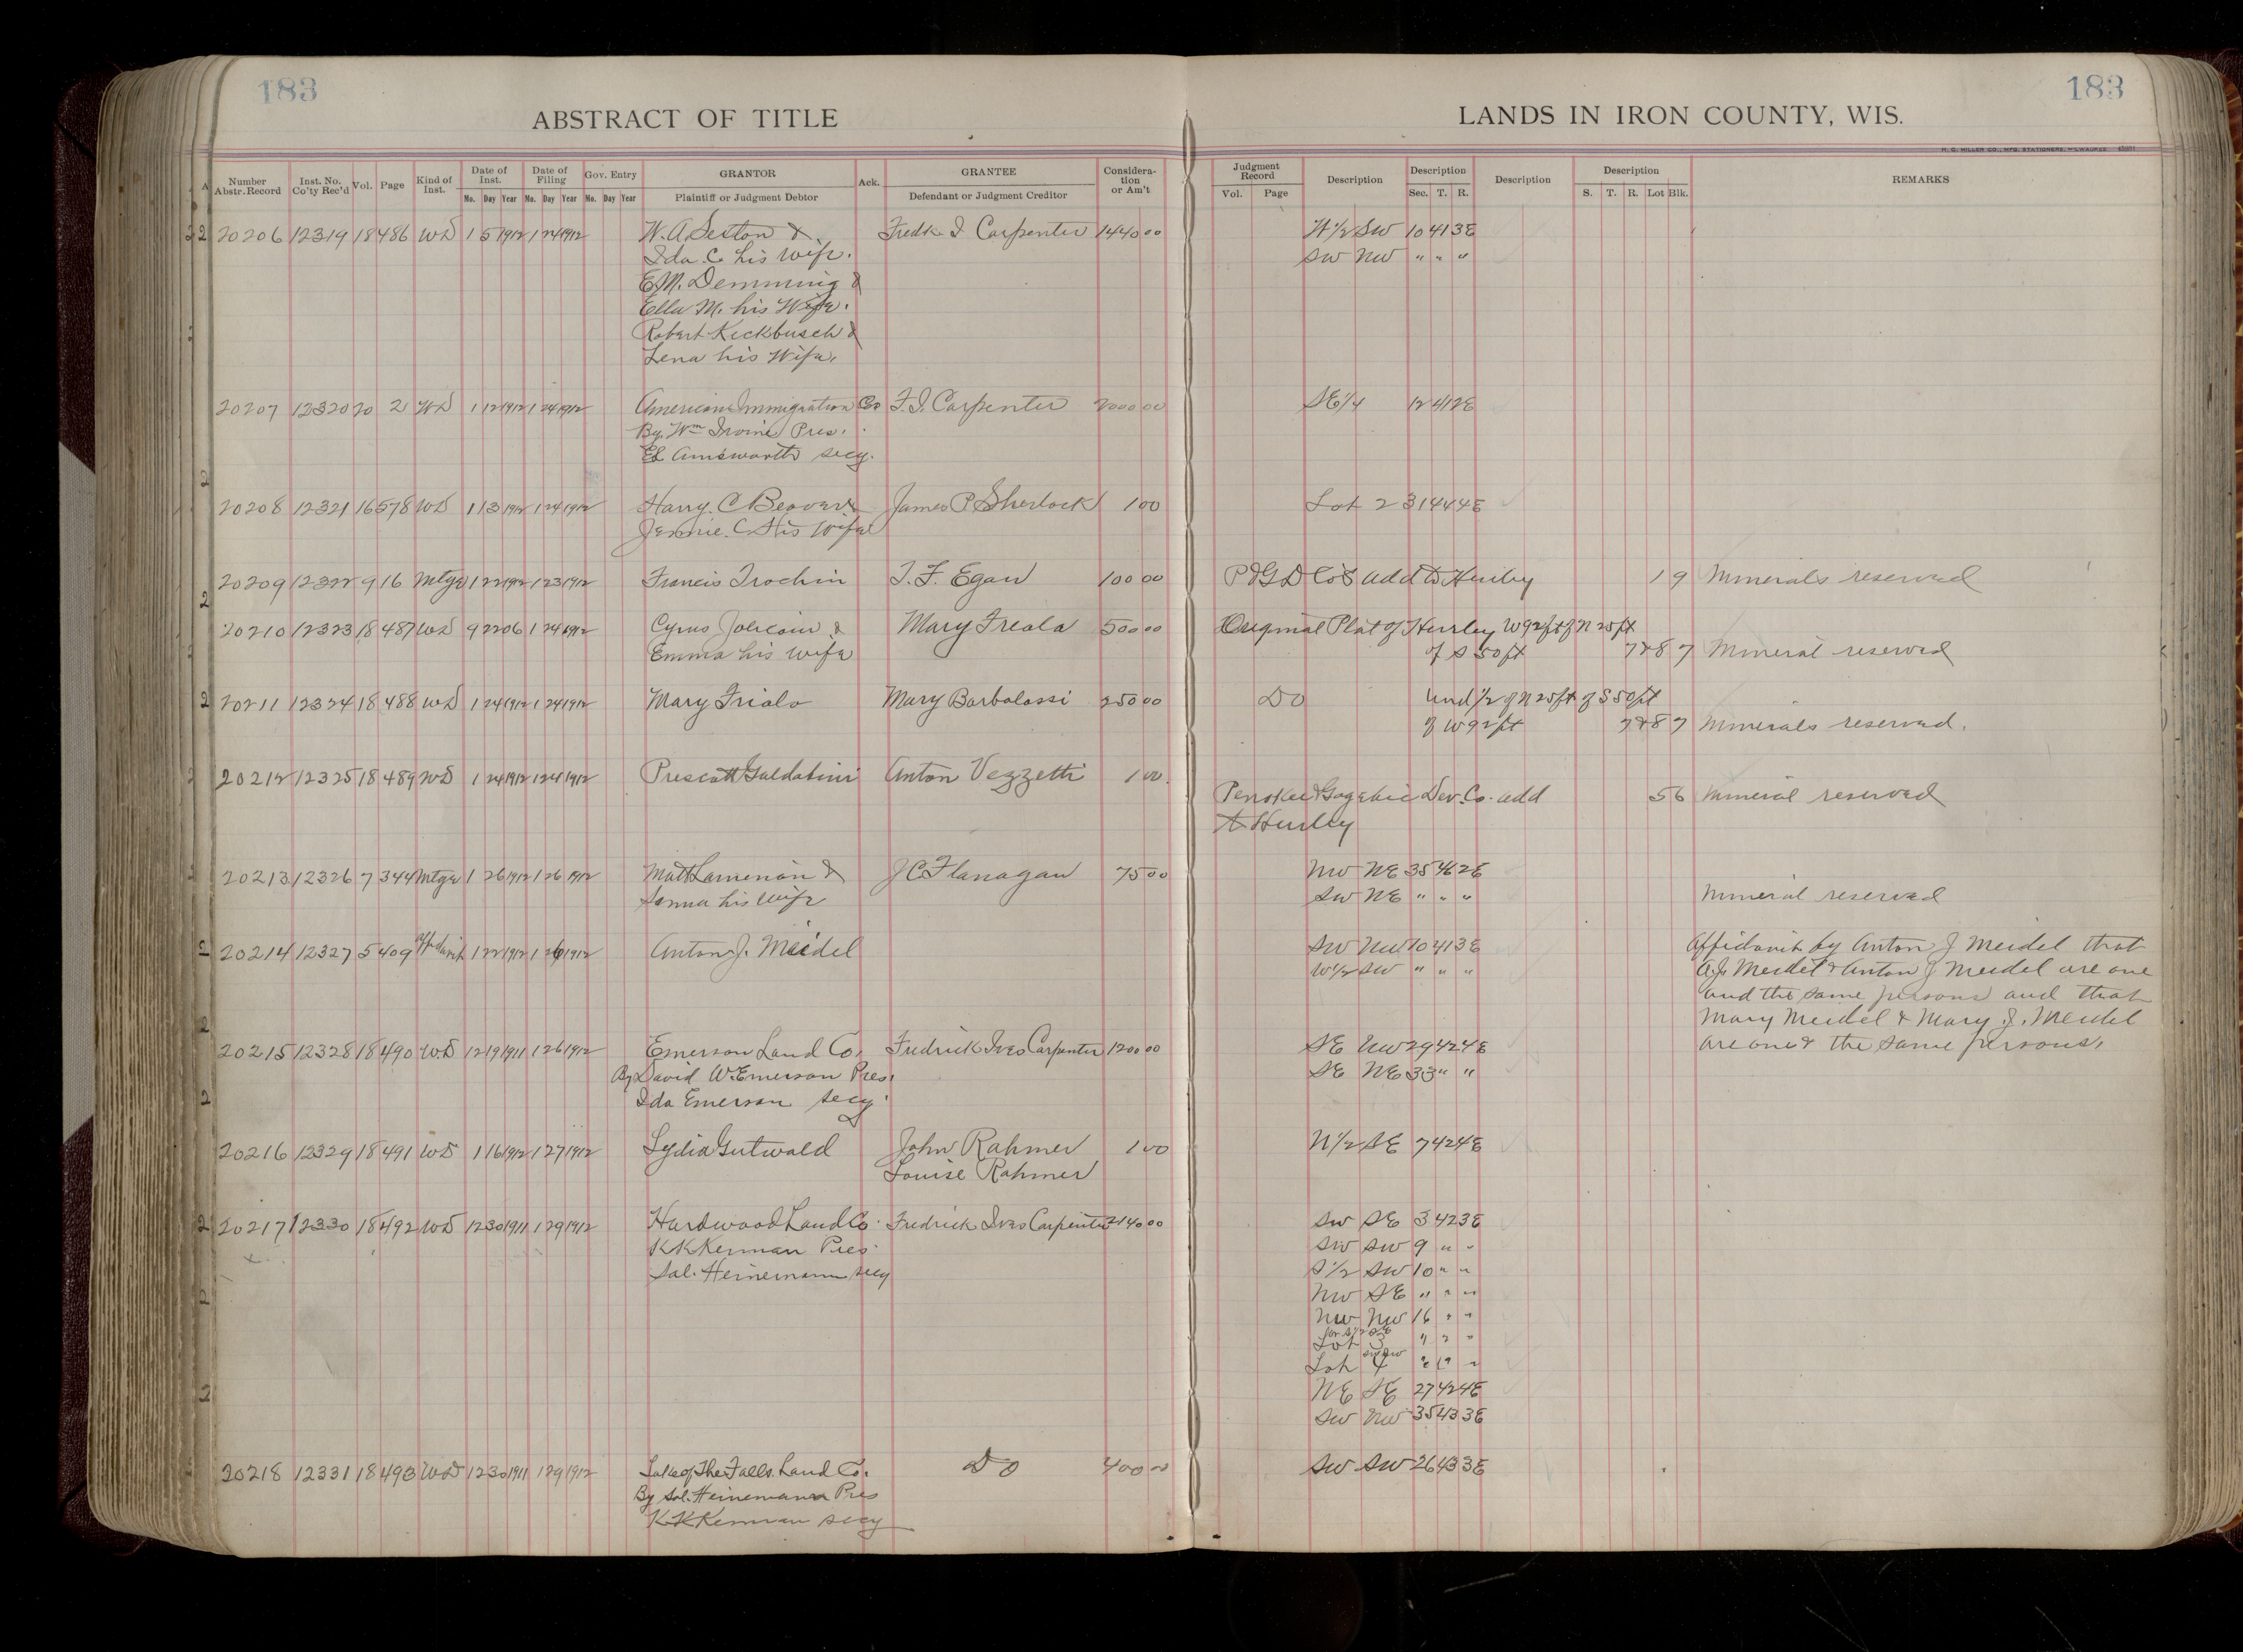 183
183
ABSTRACT OF TITLE
LANDS IN IRON COUNTY, WIS.
H. G. MILLER CO., MFG. STATIONERS, MILWAUKEE
Number Abstr. Record Inst. No. Co'ty Rec'd Vol. Page Kind of Inst. Date of Inst. Date of Filing Gov. Entry GRANTOR Ack. GRANTEE Considera-tion or Am't Judgment Record Description Description Description Description REMARKS
Mo. Day Year Mo. Day Year Mo. Day Year Plaintiff or Judgment Debtor Defendant or Judgment Creditor Vol. Page Sec. T. R. S. T. R. Lot Blk.
20206 12319 18 486 WD 1 5 1912 1 24 1912 W. A. Seston & Fredk I Carpenter 1440 00 W 1/2 SW 10 41 3E
Ida C his Wife. SW NW " " "
E.M. Demming &
Ella M. his Wife.
Robert Kickbusch &
Lena his Wife.
20207 12320 20 2 WD 1 12 1912 1 24 1912 American Immigration Co F. I. Carpenter 2000 00 SE 1/4 12 41 2E
By. Wm Irvine Pres.
Ed Ainsworth secy.
20208 12321 16 578 WD 1 13 1912 1 24 1912 Harry. C Beaver & James P Sherlock 1 00 Lot 2 31 44 4E
Jennie. C His Wife
20209 12322 9 16 Mtge 1 22 1912 1 23 1912 Francis Trochin T. F. Egan 100 00 P & G D Co's add to Hurley 1 9 Minerals reserved
20210 12323 18 487 WD 9 22 06 1 24 1912 Cyrus Jolicoin & Mary Freola 500 00 Original Plat of Hurley W 92 ft of N 25 ft
Emma his Wife of S 50 ft 7&8 7 Mineral reserved
20211 12324 18 488 WD 1 24 1912 1 24 1912 Mary Triolo Mary Barbalossi 250 00 Do Und 1/2 of N 25 ft of S 50 ft
of W 92 ft 7&8 7 Minerals reserved.
20212 12325 18 489 WD 1 24 1912 1 24 1912 Prescott Galdabini Anton Vezzetti 1 00.
Penokee & Gogebic Dev. Co. add 5 6 Mineral reserved
to Hurley
20213 12326 7 344 Mtge 1 26 1912 1 26 1912 Matt Lamenon & J C Flanagan 75 00 NW NE 35 46 2E
Sanna his Wife SW NE " " " Mineral reserved
20214 12327 5 409 Affidavit 1 22 1912 1 26 1912 Anton J. Meidel SW NW 10 41 3E Affidavit by Anton J Meidel that
W 1/2 SW " " " A. J. Meidel & Anton J Meidel are one
and the same persons and that
Mary Meidel & Mary J. Meidel
are one & the same persons.
20215 12328 18 490 WD 12 19 1911 1 26 1912 Emerson Land Co. Fredrick Ives Carpenter 1200 00 SE NW 29 42 4E
By David W. Emerson Pres. SE NE 33 " "
Ida Emerson secy.
20216 12329 18 491 WD 1 16 1912 1 27 1912 Lydia Gutwald John Rahmer 1 00 N 1/2 SE 7 42 4E
Louise Rahmer
20217 12330 18 492 WD 12 30 1911 1 29 1912 Hardwood Land Co. Fredrick Ives Carpenter 2140 00 SW SE 3 42 3E
K K Kennan Pres. SW SW 9 " "
Sol. Heinemann secy S 1/2 SW 10 " "
NW SE " " "
NW NW 16 " "
Lot 3 " " "
Lot 4 " " "
NE SE 27 42 4E
SW NW 35 43 3E
20218 12331 18 493 WD 12 30 1911 1 29 1912 Lake of The Falls Land Co. Do 400 00 SW SW 26 43 3E
By Sol. Heinemann Pres
K K Kennan secy